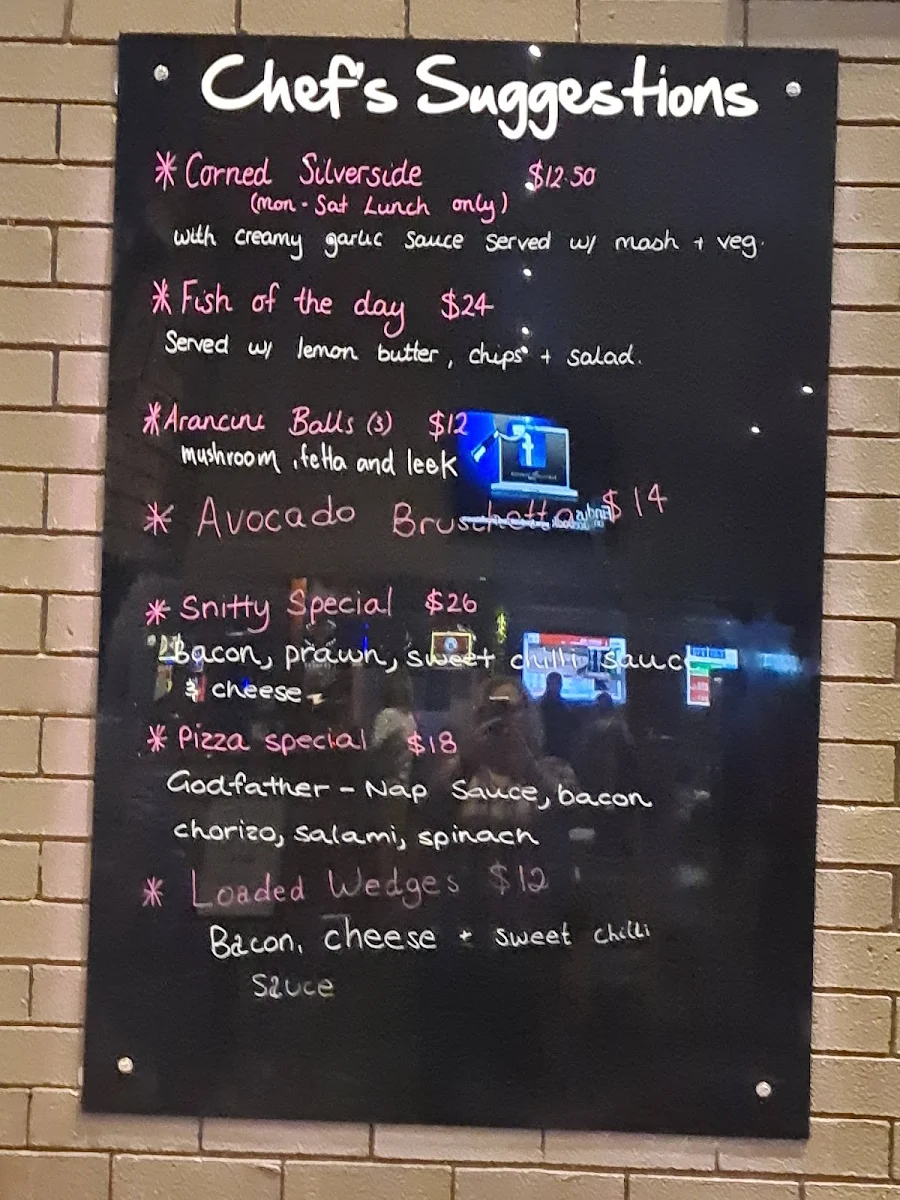 Chef's Suggestions
* Corned Silverside $12.50
(Mon - Sat Lunch only)
with creamy garlic sauce served w/ mash + veg.
* Fish of the day $24
Served w/ lemon butter, chips + salad.
* Arancini Balls (3) $12
mushroom, fetta and leek
* Avocado Bruschetta $14
* Snitty Special $26
Bacon, prawn, sweet chilli sauce
& cheese
* Pizza special $18
Godfather - Nap Sauce, bacon
chorizo, salami, spinach
* Loaded Wedges $12
Bacon, cheese + sweet chilli
Sauce